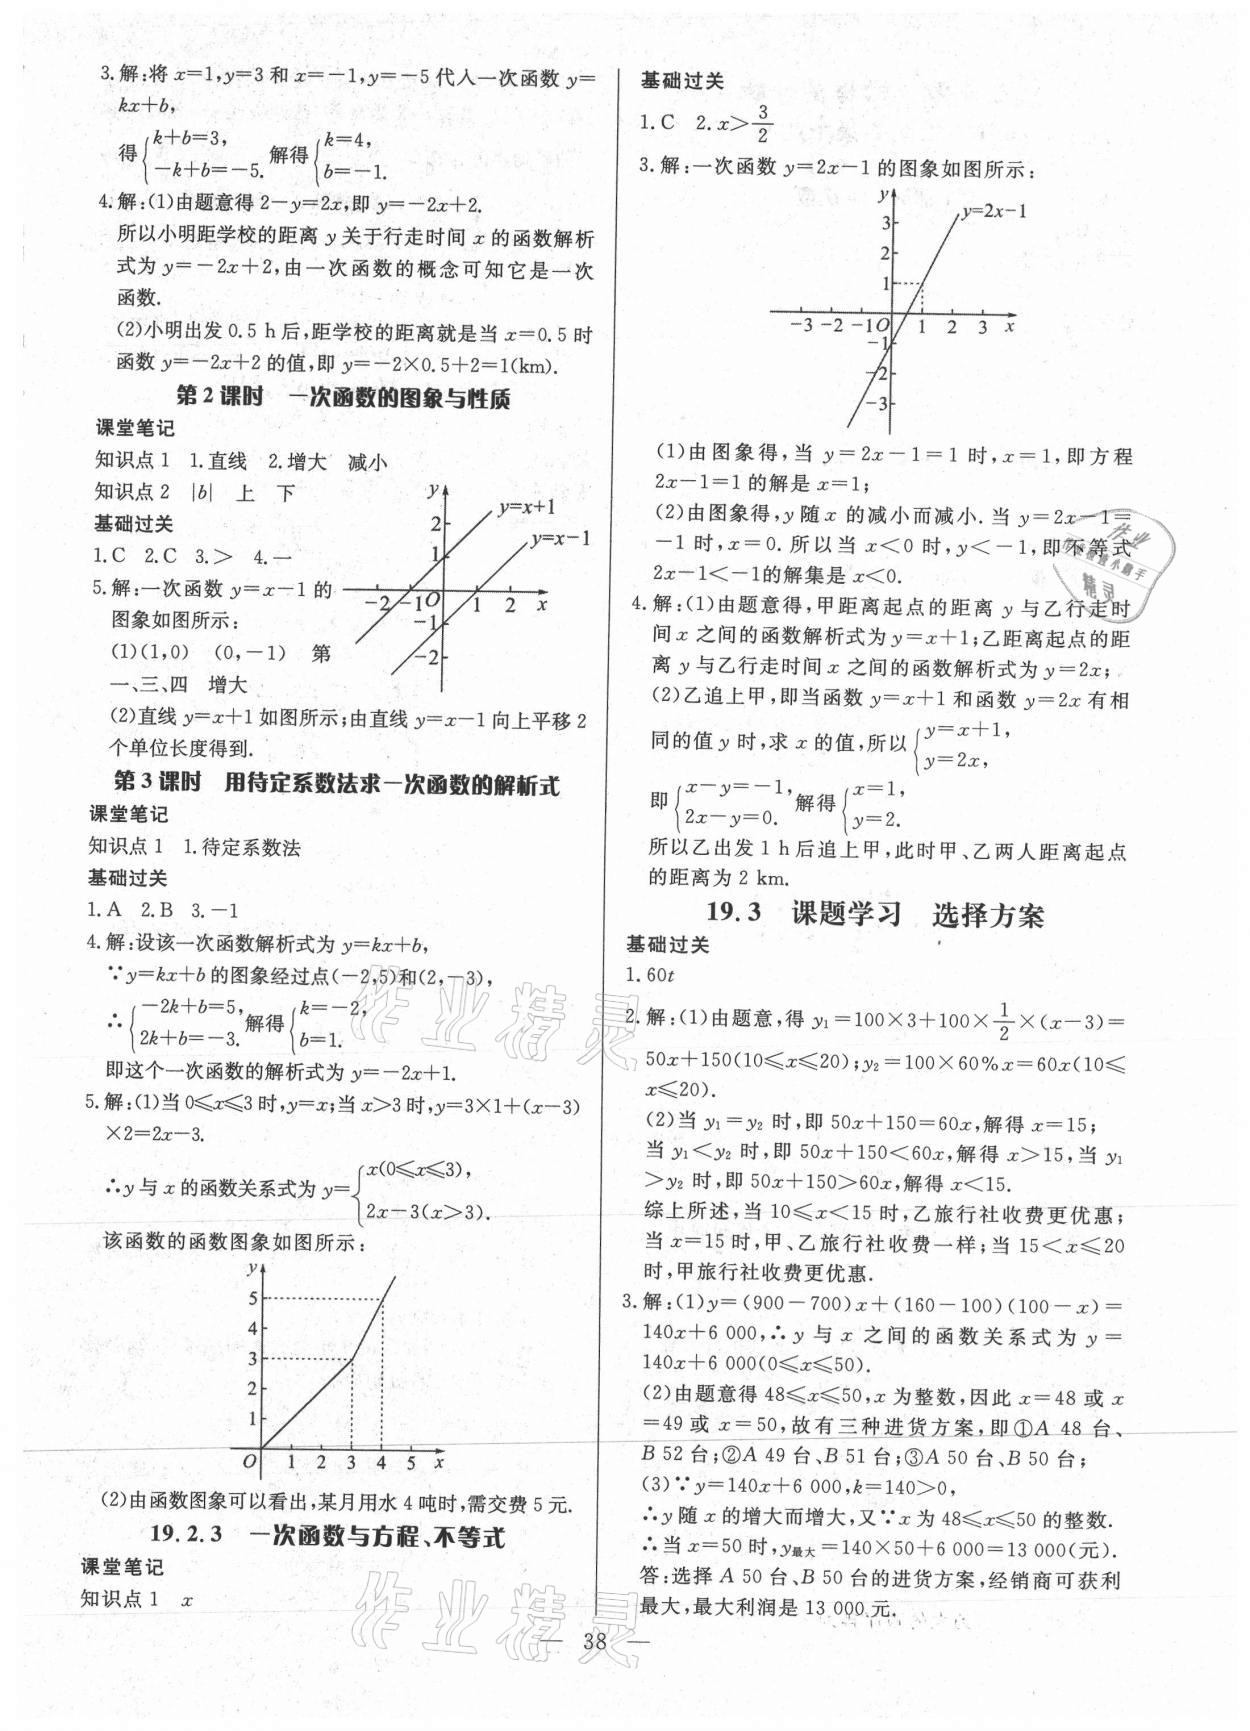 3.解:将 x=1,y=3 和 x=-1,y=-5 代入一次函数 y=
kx+b,
得{k+b=3, -k+b=-5. 解得{k=4, b=-1.
4.解:(1)由题意得 2-y=2x,即 y=-2x+2.
所以小明距学校的距离 y 关于行走时间 x 的函数解析
式为 y=-2x+2,由一次函数的概念可知它是一次
函数.
(2)小明出发 0.5 h 后,距学校的距离就是当 x=0.5 时
函数 y=-2x+2 的值,即 y=-2×0.5+2=1(km).
第 2 课时 一次函数的图象与性质
课堂笔记
知识点 1 1.直线 2.增大 减小
知识点 2 |b| 上 下
基础过关
1.C 2.C 3.> 4.一
5.解:一次函数 y=x-1 的
图象如图所示:
(1)(1,0) (0,-1) 第
一、三、四 增大
y
2
1
-2 -1 O 1 2 x
-1
-2
y=x+1
y=x-1
(2)直线 y=x+1 如图所示;由直线 y=x-1 向上平移 2
个单位长度得到.
第 3 课时 用待定系数法求一次函数的解析式
课堂笔记
知识点 1 1.待定系数法
基础过关
1.A 2.B 3.-1
4.解:设该一次函数解析式为 y=kx+b,
∵y=kx+b 的图象经过点(-2,5)和(2,-3),
∴{-2k+b=5, 2k+b=-3. 解得{k=-2, b=1.
即这个一次函数的解析式为 y=-2x+1.
5.解:(1)当 0≤x≤3 时,y=x;当 x>3 时,y=3×1+(x-3)
×2=2x-3.
∴y 与 x 的函数关系式为 y={x(0≤x≤3), 2x-3(x>3).
该函数的函数图象如图所示:
y
5
4
3
2
1
O 1 2 3 4 5 x
(2)由函数图象可以看出,某月用水 4 吨时,需交费 5 元.
19.2.3 一次函数与方程、不等式
课堂笔记
知识点 1 x
基础过关
1.C 2.x>3/2
3.解:一次函数 y=2x-1 的图象如图所示:
y
y=2x-1
3
2
1
-3 -2 -1 O 1 2 3 x
-1
-2
-3
(1)由图象得,当 y=2x-1=1 时,x=1,即方程
2x-1=1 的解是 x=1;
(2)由图象得,y 随 x 的减小而减小.当 y=2x-1=
-1 时,x=0.所以当 x<0 时,y<-1,即不等式
2x-1<-1的解集是 x<0.
4.解:(1)由题意得,甲距离起点的距离 y 与乙行走时
间 x 之间的函数解析式为 y=x+1;乙距离起点的距
离 y 与乙行走时间 x 之间的函数解析式为 y=2x;
(2)乙追上甲,即当函数 y=x+1 和函数 y=2x 有相
同的值 y 时,求 x 的值,所以{y=x+1, y=2x,
即{x-y=-1, 2x-y=0. 解得{x=1, y=2.
所以乙出发 1 h 后追上甲,此时甲、乙两人距离起点
的距离为 2 km.
19.3 课题学习 选择方案
基础过关
1.60t
2.解:(1)由题意,得 y₁=100×3+100×1/2×(x-3)=
50x+150(10≤x≤20);y₂=100×60%x=60x(10≤
x≤20).
(2)当 y₁=y₂ 时,即 50x+150=60x,解得 x=15;
当 y₁<y₂ 时,即 50x+150<60x,解得 x>15,当 y₁
>y₂ 时,即 50x+150>60x,解得 x<15.
综上所述,当 10≤x<15 时,乙旅行社收费更优惠;
当 x=15 时,甲、乙旅行社收费一样;当 15<x≤20
时,甲旅行社收费更优惠.
3.解:(1)y=(900-700)x+(160-100)(100-x)=
140x+6 000,∴y 与 x 之间的函数关系式为 y=
140x+6 000(0≤x≤50).
(2)由题意得 48≤x≤50,x 为整数,因此 x=48 或 x
=49 或 x=50,故有三种进货方案,即①A 48 台、
B 52 台;②A 49 台、B 51 台;③A 50 台、B 50 台;
(3)∵y=140x+6 000,k=140>0,
∴y 随 x 的增大而增大,又∵x 为 48≤x≤50 的整数.
∴当 x=50 时,y最大=140×50+6 000=13 000(元).
答:选择 A 50 台、B 50 台的进货方案,经销商可获利
最大,最大利润是 13 000 元.
作业精灵
作业精灵
作业
精灵
— 38 —